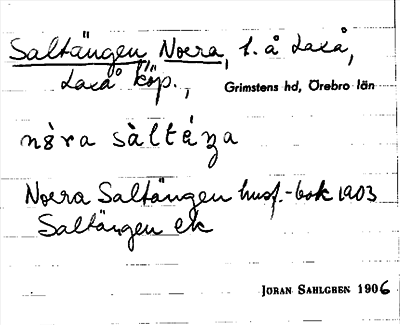 Saltängen, Norra, l. å Laxå,
Laxå köp., Grimstens hd, Örebro län
nòra sàltéŋa
Norra Saltängen husf.-bok 1903
Saltängen ek
JÖRAN SAHLGREN 1906